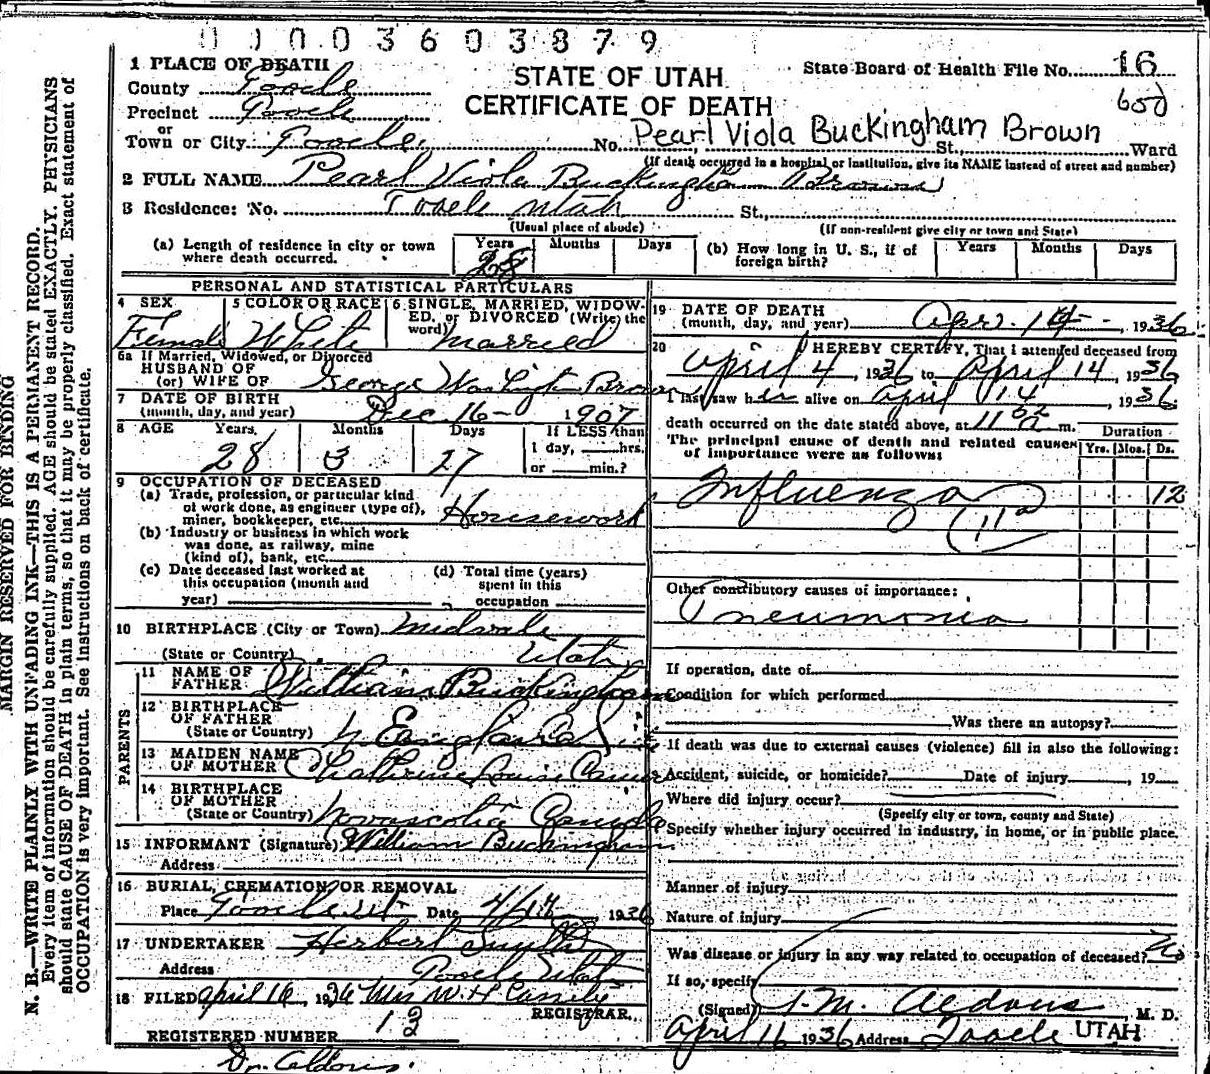 0 1 0 0 0 3 6 0 3 8 7 9
1 PLACE OF DEATH
STATE OF UTAH
CERTIFICATE OF DEATH
State Board of Health File No. 16
650
County Tooele
Precinct Tooele
or
Town or City Tooele No. St., Ward
Pearl Viola Buckingham Brown
(If death occurred in a hospital or institution, give its NAME instead of street and number)
2 FULL NAME Pearl Viola Buckingham Brown
3 Residence: No. Tooele Utah St.,
(Usual place of abode) (If non-resident give city or town and State)
(a) Length of residence in city or town where death occurred. Years 28 Months Days
(b) How long in U. S., if of foreign birth? Years Months Days
PERSONAL AND STATISTICAL PARTICULARS
4 SEX Female
5 COLOR OR RACE White
6 SINGLE, MARRIED, WIDOWED, or DIVORCED (Write the word) Married
6a If Married, Widowed, or Divorced
HUSBAND OF
(or) WIFE OF George Washington Brown
7 DATE OF BIRTH
(month, day, and year) Dec 16- 1907
8 AGE Years 28 Months 3 Days 27 If LESS than
1 day, hrs.
or min.?
9 OCCUPATION OF DECEASED
(a) Trade, profession, or particular kind
of work done, as engineer (type of),
miner, bookkeeper, etc. Housework
(b) Industry or business in which work
was done, as railway, mine
(kind of), bank, etc.
(c) Date deceased last worked at
this occupation (month and
year)
(d) Total time (years)
spent in this
occupation
10 BIRTHPLACE (City or Town) Midvale
(State or Country) Utah
PARENTS
11 NAME OF
FATHER William Buckingham
12 BIRTHPLACE
OF FATHER
(State or Country)
13 MAIDEN NAME
OF MOTHER Chatherine Louise
14 BIRTHPLACE
OF MOTHER
(State or Country) Novascotia Canada
15 INFORMANT (Signature) William Buckingham
Address
16 BURIAL, CREMATION OR REMOVAL
Place Tooele Ut Date 1936
17 UNDERTAKER Herbert
Address Tooele Utah
18 FILED April 16, 1936 Mrs W. H. Cassity
REGISTRAR.
REGISTERED NUMBER 13
Dr. Aldous.
19 DATE OF DEATH
(month, day, and year) Apr. 14 , 1936
20 I HEREBY CERTIFY, That I attended deceased from
April 4, 1936 to April 14, 1936
I last saw her alive on April 14 1936
death occurred on the date stated above, at 11 a m.
The principal cause of death and related causes
of importance were as follows:
Duration
Yrs. Mos. Ds.
Influenza 12
(11a
Other contributory causes of importance:
Pneumonia
If operation, date of
Condition for which performed
Was there an autopsy?
If death was due to external causes (violence) fill in also the following:
Accident, suicide, or homicide? Date of injury , 19
Where did injury occur?
(Specify city or town, county and State)
Specify whether injury occurred in industry, in home, or in public place.
Manner of injury
Nature of injury
Was disease or injury in any way related to occupation of deceased? No
If so, specify
(Signed) J. M. Aldous M. D.
April 16 1936 Address Tooele UTAH
MARGIN RESERVED FOR BINDING
N. B.—WRITE PLAINLY, WITH UNFADING INK—THIS IS A PERMANENT RECORD.
Every item of information should be carefully supplied. AGE should be stated EXACTLY. PHYSICIANS
should state CAUSE OF DEATH in plain terms, so that it may be properly classified. Exact statement of
OCCUPATION is very important. See instructions on back of certificate.